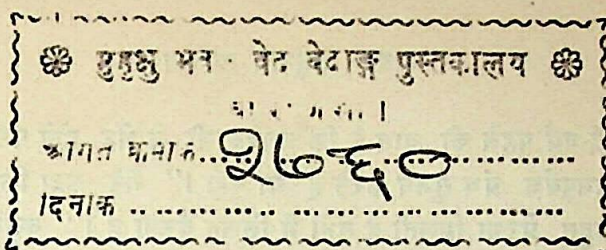 ❀ मुमुक्षु भवन वेद वेदाङ्ग पुस्तकालय ❀
वाराणसी ।
आगत क्रमांक.....२७६०.....
दिनांक .....